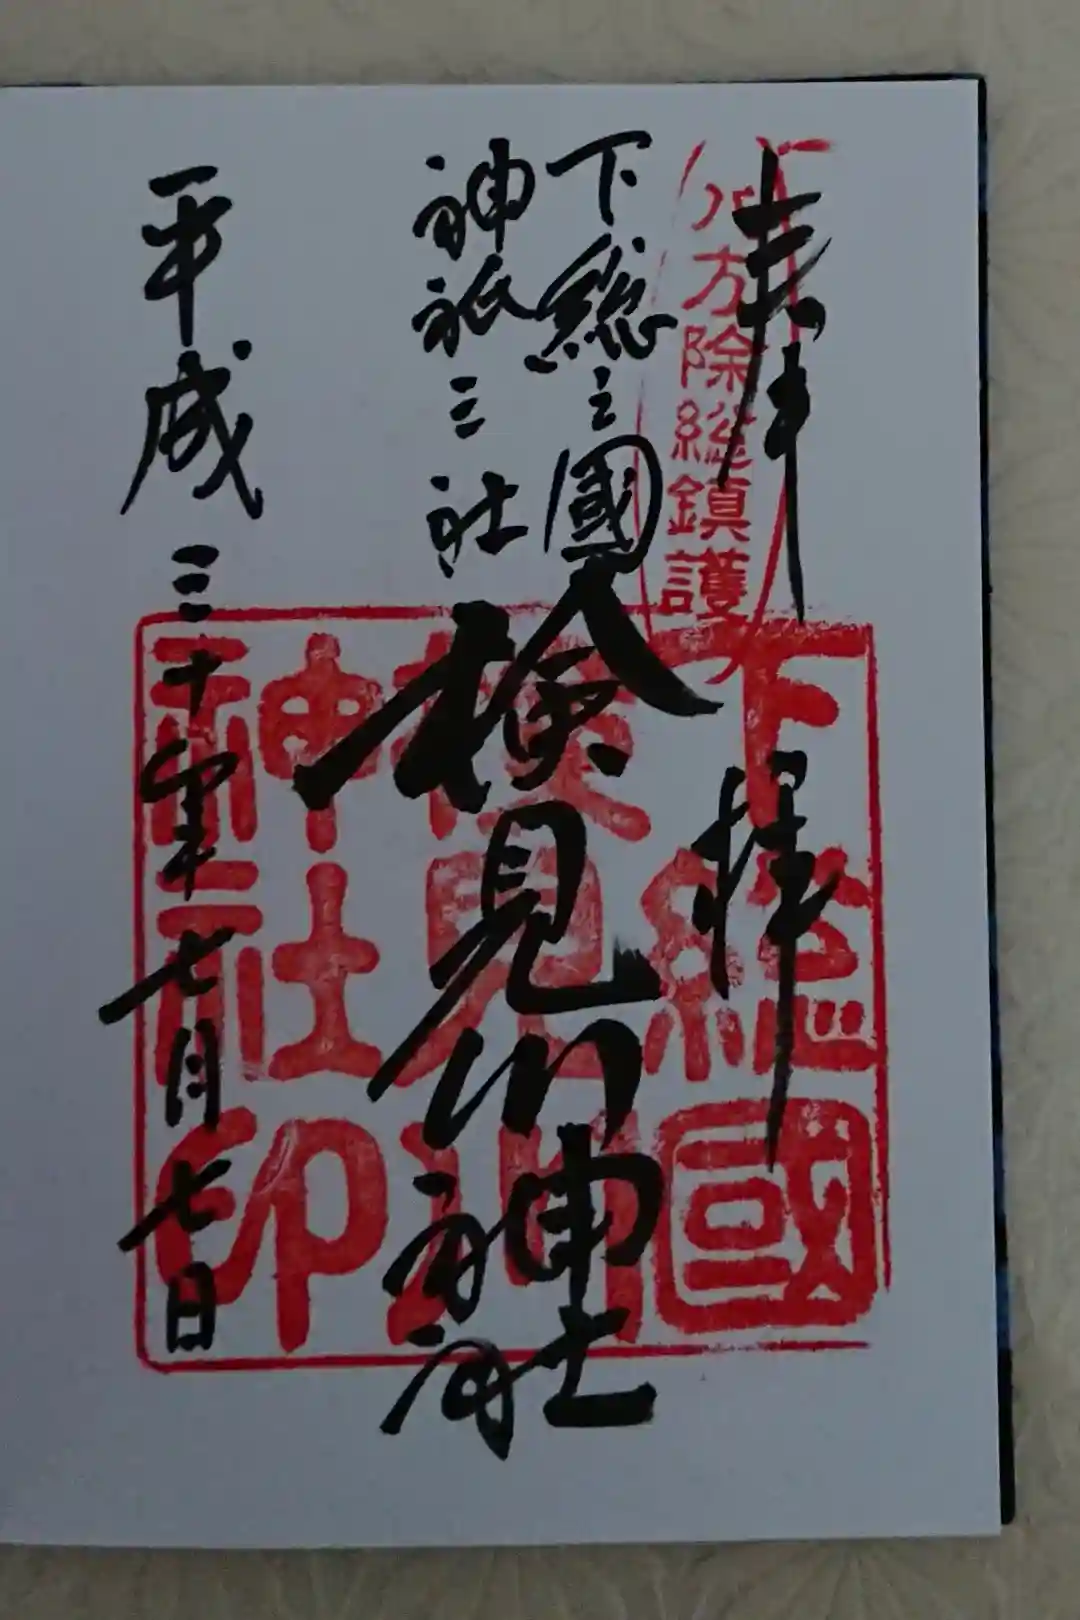 奉拝
八方除総鎮護
下総之國
神祇三社
検見川神社
下総國
検見川
神社印
平成三十年七月七日